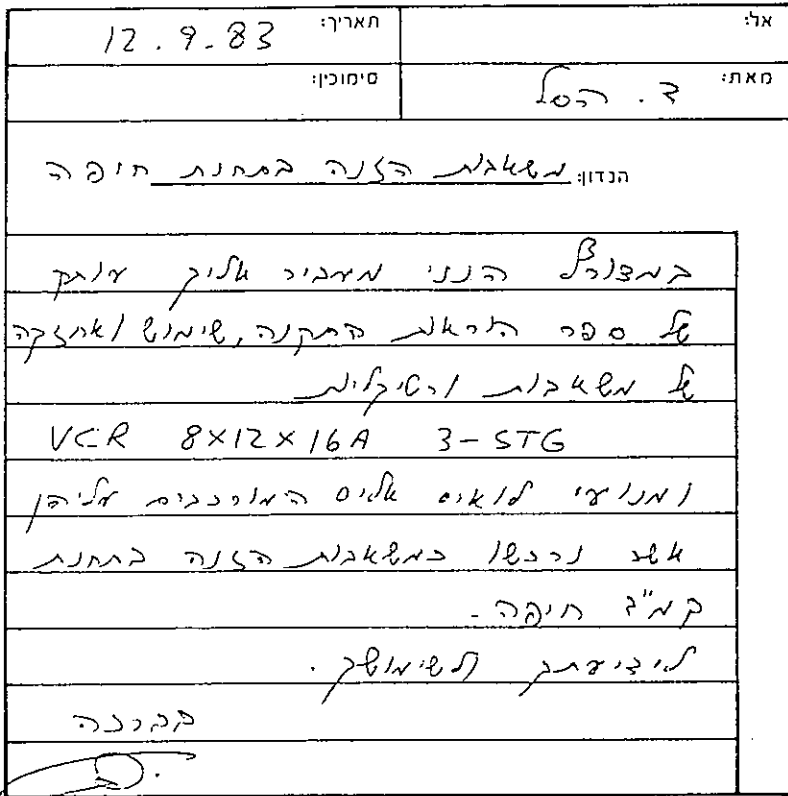 אל:
תאריך: 12.9.83
מאת: ד. הסל
סימוכין:
הנדון: משאבות הזנה בתחנת חיפה
במצורף הנני מעביר אליך עותק
של ספר הוראות התקנה, שימוש ואחזקה
של משאבות ורטיקליות
VCR 8X12X16A 3-STG
ומנועי לואיס אליס המורכבים עליהן
אשר נרכשו כמשאבות הזנה בתחנת
קמ"ד חיפה -
לידיעתך ולשימושך.
בברכה